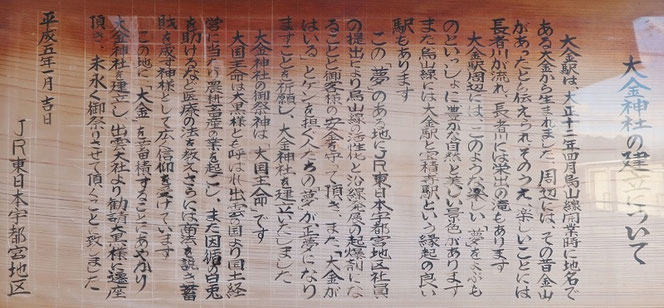 大金神社の建立について
大金駅は、大正十二年四月烏山線開業時に地名で
ある大金から生まれました 周辺には、その昔金山
があったと伝えられ、そのうえ、楽しいことには
長者川が流れ、長者川には栄出の滝もあります
大金駅周辺には、このような楽しい夢をよぶも
のといっしょに豊かな自然と美しい景色があります
また烏山線には大金駅と宝積寺駅という縁起の良い
駅もあります
この「夢」のある地にJR東日本宇都宮地区社員
の提出により烏山線の活性化と沿線発展の起爆剤にな
ることと御客様の安全を守って頂き、また、「大金が
はいる」とゲンを担ぐ人たちの「夢が正夢になり
ますことを祈願し、大金神社を建立いたしました
大金神社の御祭神は「大国主命」です
大国主命は大黒様とも呼ばれ出雲国より国土経
営に当たり農耕畜産の業を起こし、また因幡の白兎
を助けるなど医療の法を教え さらには運法を説き蓄
財を成す神様として広く信仰を受けています
この地に「大金」を蓄積することにあやかり
大金神社を建立し出雲大社より勧請大黒様に遷座
頂き、末永く御祭りさせて頂くことに致しました
平成五年一月吉日
JR東日本宇都宮地区